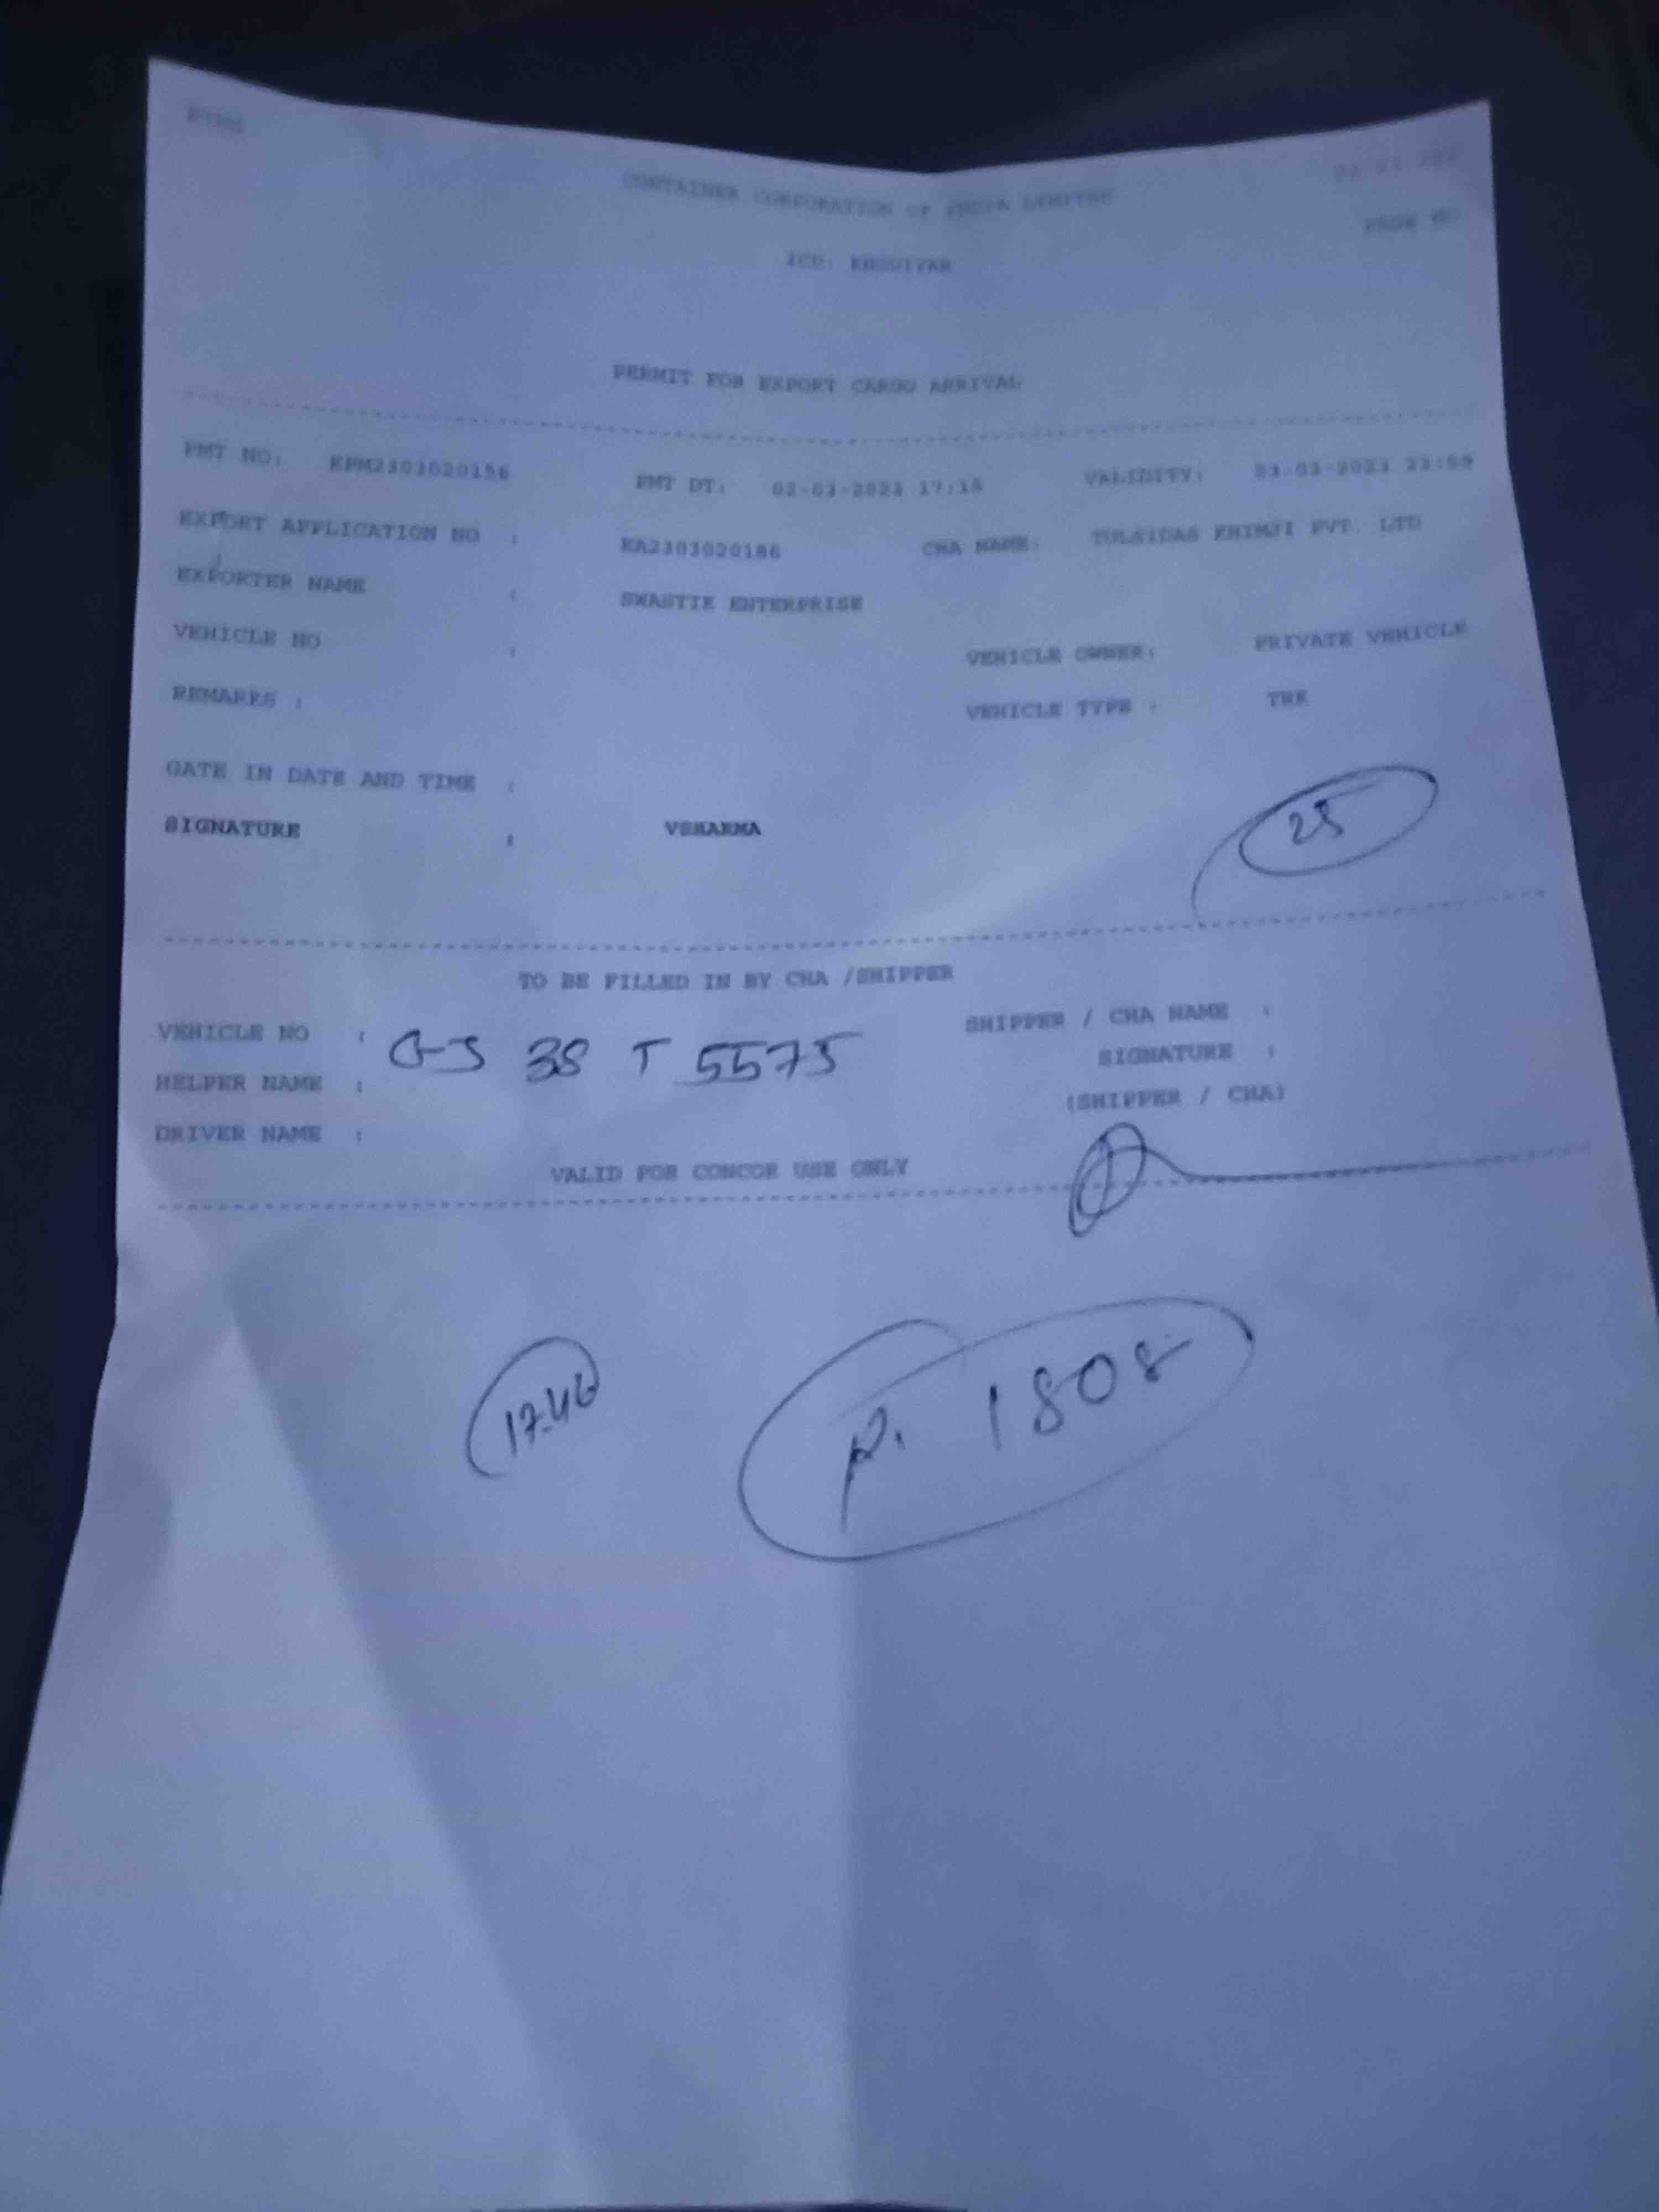 CONTAINER CORPORATION OF INDIA LIMITED
ICD: KHODIYAR
PERMIT FOR EXPORT CARGO ARRIVAL
PMT NO: EPM2303020156 PMT DT: 02-03-2023 VALIDITY: 03-03-2023 23:59
EXPORT APPLICATION NO : EA2303020186 CHA NAME: TULSIDAS KHIMJI PVT. LTD
EXPORTER NAME : SWASTIK ENTERPRISE
VEHICLE NO : VEHICLE OWNER: PRIVATE VEHICLE
REMARKS : VEHICLE TYPE : TRK
GATE IN DATE AND TIME :
SIGNATURE : VSHARMA
25
TO BE FILLED IN BY CHA /SHIPPER
VEHICLE NO : GJ 38 T 5575 SHIPPER / CHA NAME :
HELPER NAME : SIGNATURE :
(SHIPPER / CHA)
DRIVER NAME :
VALID FOR CONCOR USE ONLY
17-46
P. 1808